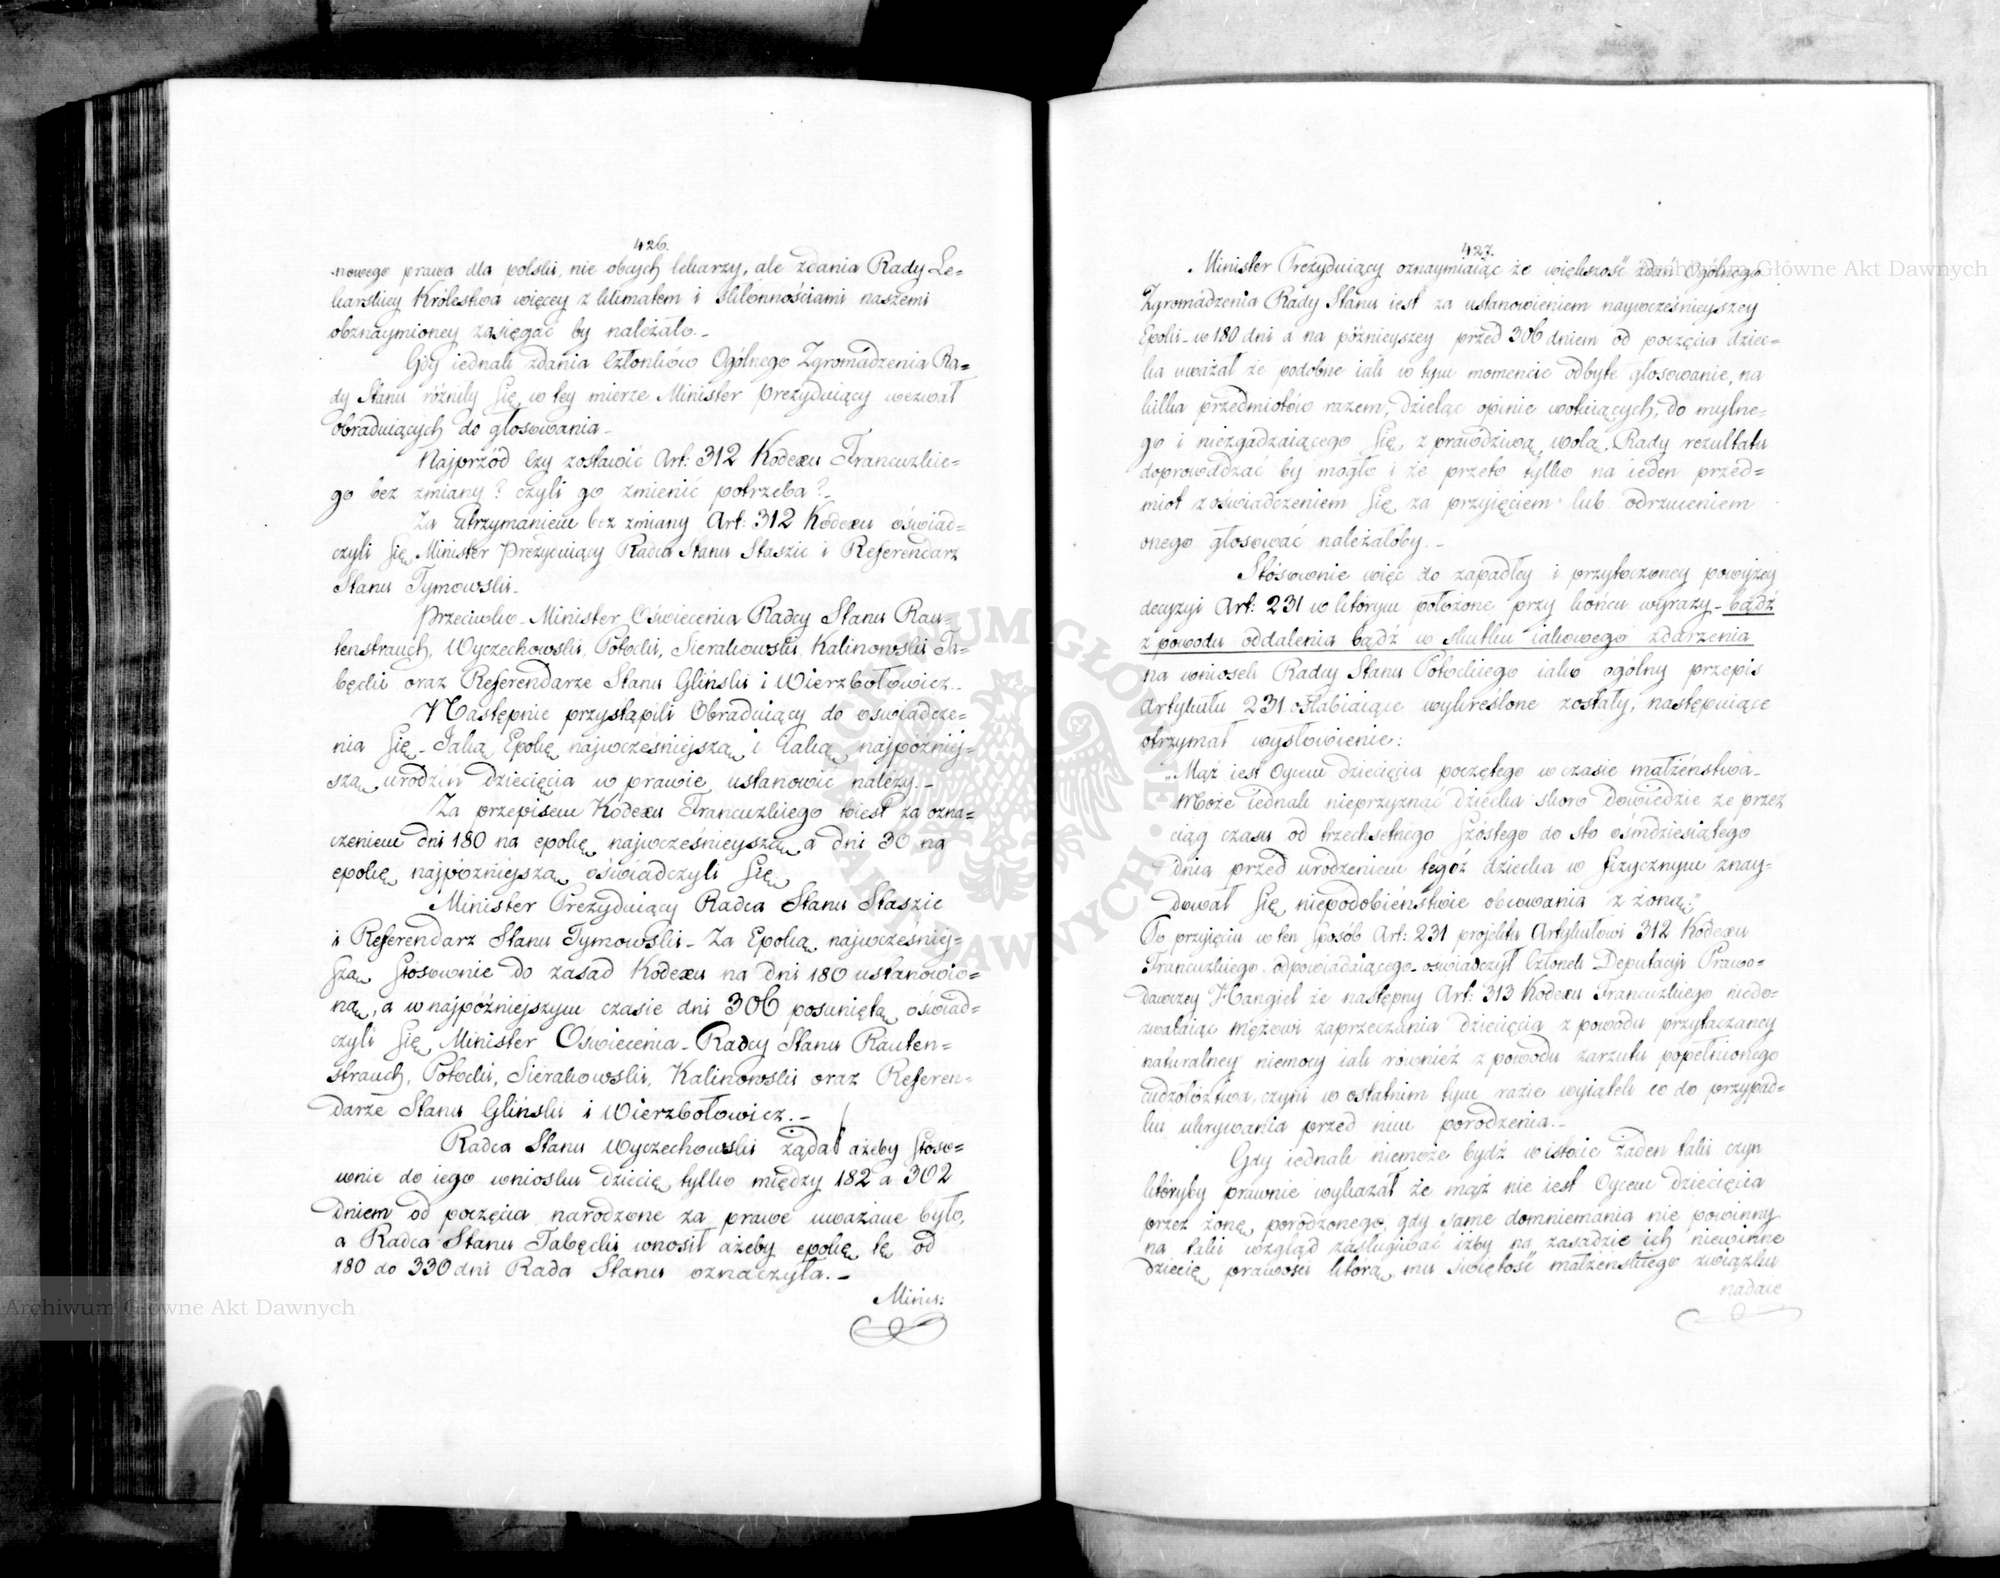 426.
nowego prawa dla polski, nie obcych lekarzy, ale zdania Rady Le=
karskiey Królestwa więcey z klimatem i skłonnościami naszemi
obznaymioney zasięgać by należało._
Gdy iednak zdania Członków Ogólnego Zgromadzenia Ra=
dy Stanu różniły się, w tey mierze Minister Prezyduiący wezwał
obraduiących do głosowania_
Najprzód Czy zostawić Art: 312 Kodexu Francuzkie=
go bez zmiany? czyli go zmienić potrzeba?_
Za utrzymaniem bez zmiany Art: 312 Kodexu oświad=
czyli się Minister Prezyduiący Radca Stanu Staszic i Referendarz
Stanu Tymowski_
Przeciwko_ Minister Oświecenia Radcy Stanu Rau=
tenstrauch, Wyczechowski, Potocki, Sierakowski, Kalinowski Ta=
będki oraz Referendarze Stanu Gliński i Wierzbołowicz._
Następnie przystąpili Obraduiący do oświadcze=
nia się_ Jaką Epokę najwcześniejszą i Jaką najpóźniej=
szą urodzin dziecięcia w prawie ustanowić należy._
Za przepisem Kodexu Francuzkiego to iest za ozna=
czeniem dni 180 na epokę najwcześnieyszą a dni 30 na
epokę najpóźniejszą oświadczyli się
Minister Prezyduiący Radca Stanu Staszic
i Referendarz Stanu Tymowski_ Za Epoką najwcześniej=
szą stosownie do zasad Kodexu na dni 180 ustanowio=
ną, a w najpóźniejszym czasie dni 306 posuniętą oświad=
czyli się Minister Oświecenia_ Radcy Stanu Rauten=
strauch, Potocki, Sierakowski, Kalinowski oraz Referen=
darze Stanu Gliński i Wierzbołowicz._
Radca Stanu Wyczechowski żądał ażeby stoso=
wnie do iego wniosku dziecię tylko między 182 a 302
dniem od poczęcia narodzone za prawe uważane było,
a Radca Stanu Tabęcki wnosił ażeby epokę tę od
180 do 330 dni Rada Stanu oznaczyła._
Minis:
427.
Minister Prezyduiący oznaymiaiąc że większość zdań Ogólnego
Zgromadzenia Rady Stanu iest za ustanowieniem naywcześnieyszey
Epoki_ w 180 dni a na późnieyszey przed 306 dniem od poczęcia dziec=
ka uważał że podobne iak w tym momencie odbyte głosowanie, na
kilka przedmiotów razem, dzieląc opinie wotuiących, do mylne=
go i niezgadzaiącego się z prawdziwą wolą Rady rezultatu
doprowadzać by mogło i że przeto tylko na ieden przed=
miot z oświadczeniem się za przyięciem lub odrzuceniem
onego głosować należałoby._
Stósownie więc do zapadłey i przytoczoney powyżey
decyzyi Art: 231 w którym położone przy końcu wyrazy_ bądź
z powodu oddalenia bądź w skutku iakowego zdarzenia
na wniosek Radcy Stanu Potockiego iako ogólny przepis
Artykułu 231 osłabiaiące wykreślone zostały, następuiące
otrzymał wysłowienie:
„Mąż iest Oycem dziecięcia poczętego w czasie małżeństwa_
Może iednak nieprzyznać dziecka skoro dowiedzie że przez
ciąg czasu od trzechsetnego szóstego do sto ośmdziesiątego
dnia przed urodzeniem tegoż dziecka w fizycznym znay=
dował się niepodobieństwie obcowania z żoną."
Po przyięciu w ten sposób Art: 231 projektu Artykułowi 312 Kodexu
Francuzkiego odpowiadaiącego_ oświadczył Członek Deputacyi Prawo=
dawczey Hangiel że następny Art: 313 Kodexu Francuzkiego niedo=
zwalaiąc mężowi zaprzeczania dziecięcia z powodu przytaczaney
naturalney niemocy iak również z powodu zarzutu popełnionego
cudzołóztwa, czyni w ostatnim tym razie wyiątek co do przypad=
ku ukrywania przed nim porodzenia._
Gdy iednak niemoże bydź w istocie żaden taki czyn
któryby prawnie wykazał że mąż nie iest Oycem dziecięcia
przez żonę porodzonego, gdy same domniemania nie powinny
na taki wzgląd zasługiwać iżby na zasadzie ich niewinne
dziecię prawości którą mu świętość małżeńskiego związku
nadaie
Archiwum Główne Akt Dawnych
Archiwum Główne Akt Dawnych
ARCHIWUM GŁÓWNE AKT DAWNYCH